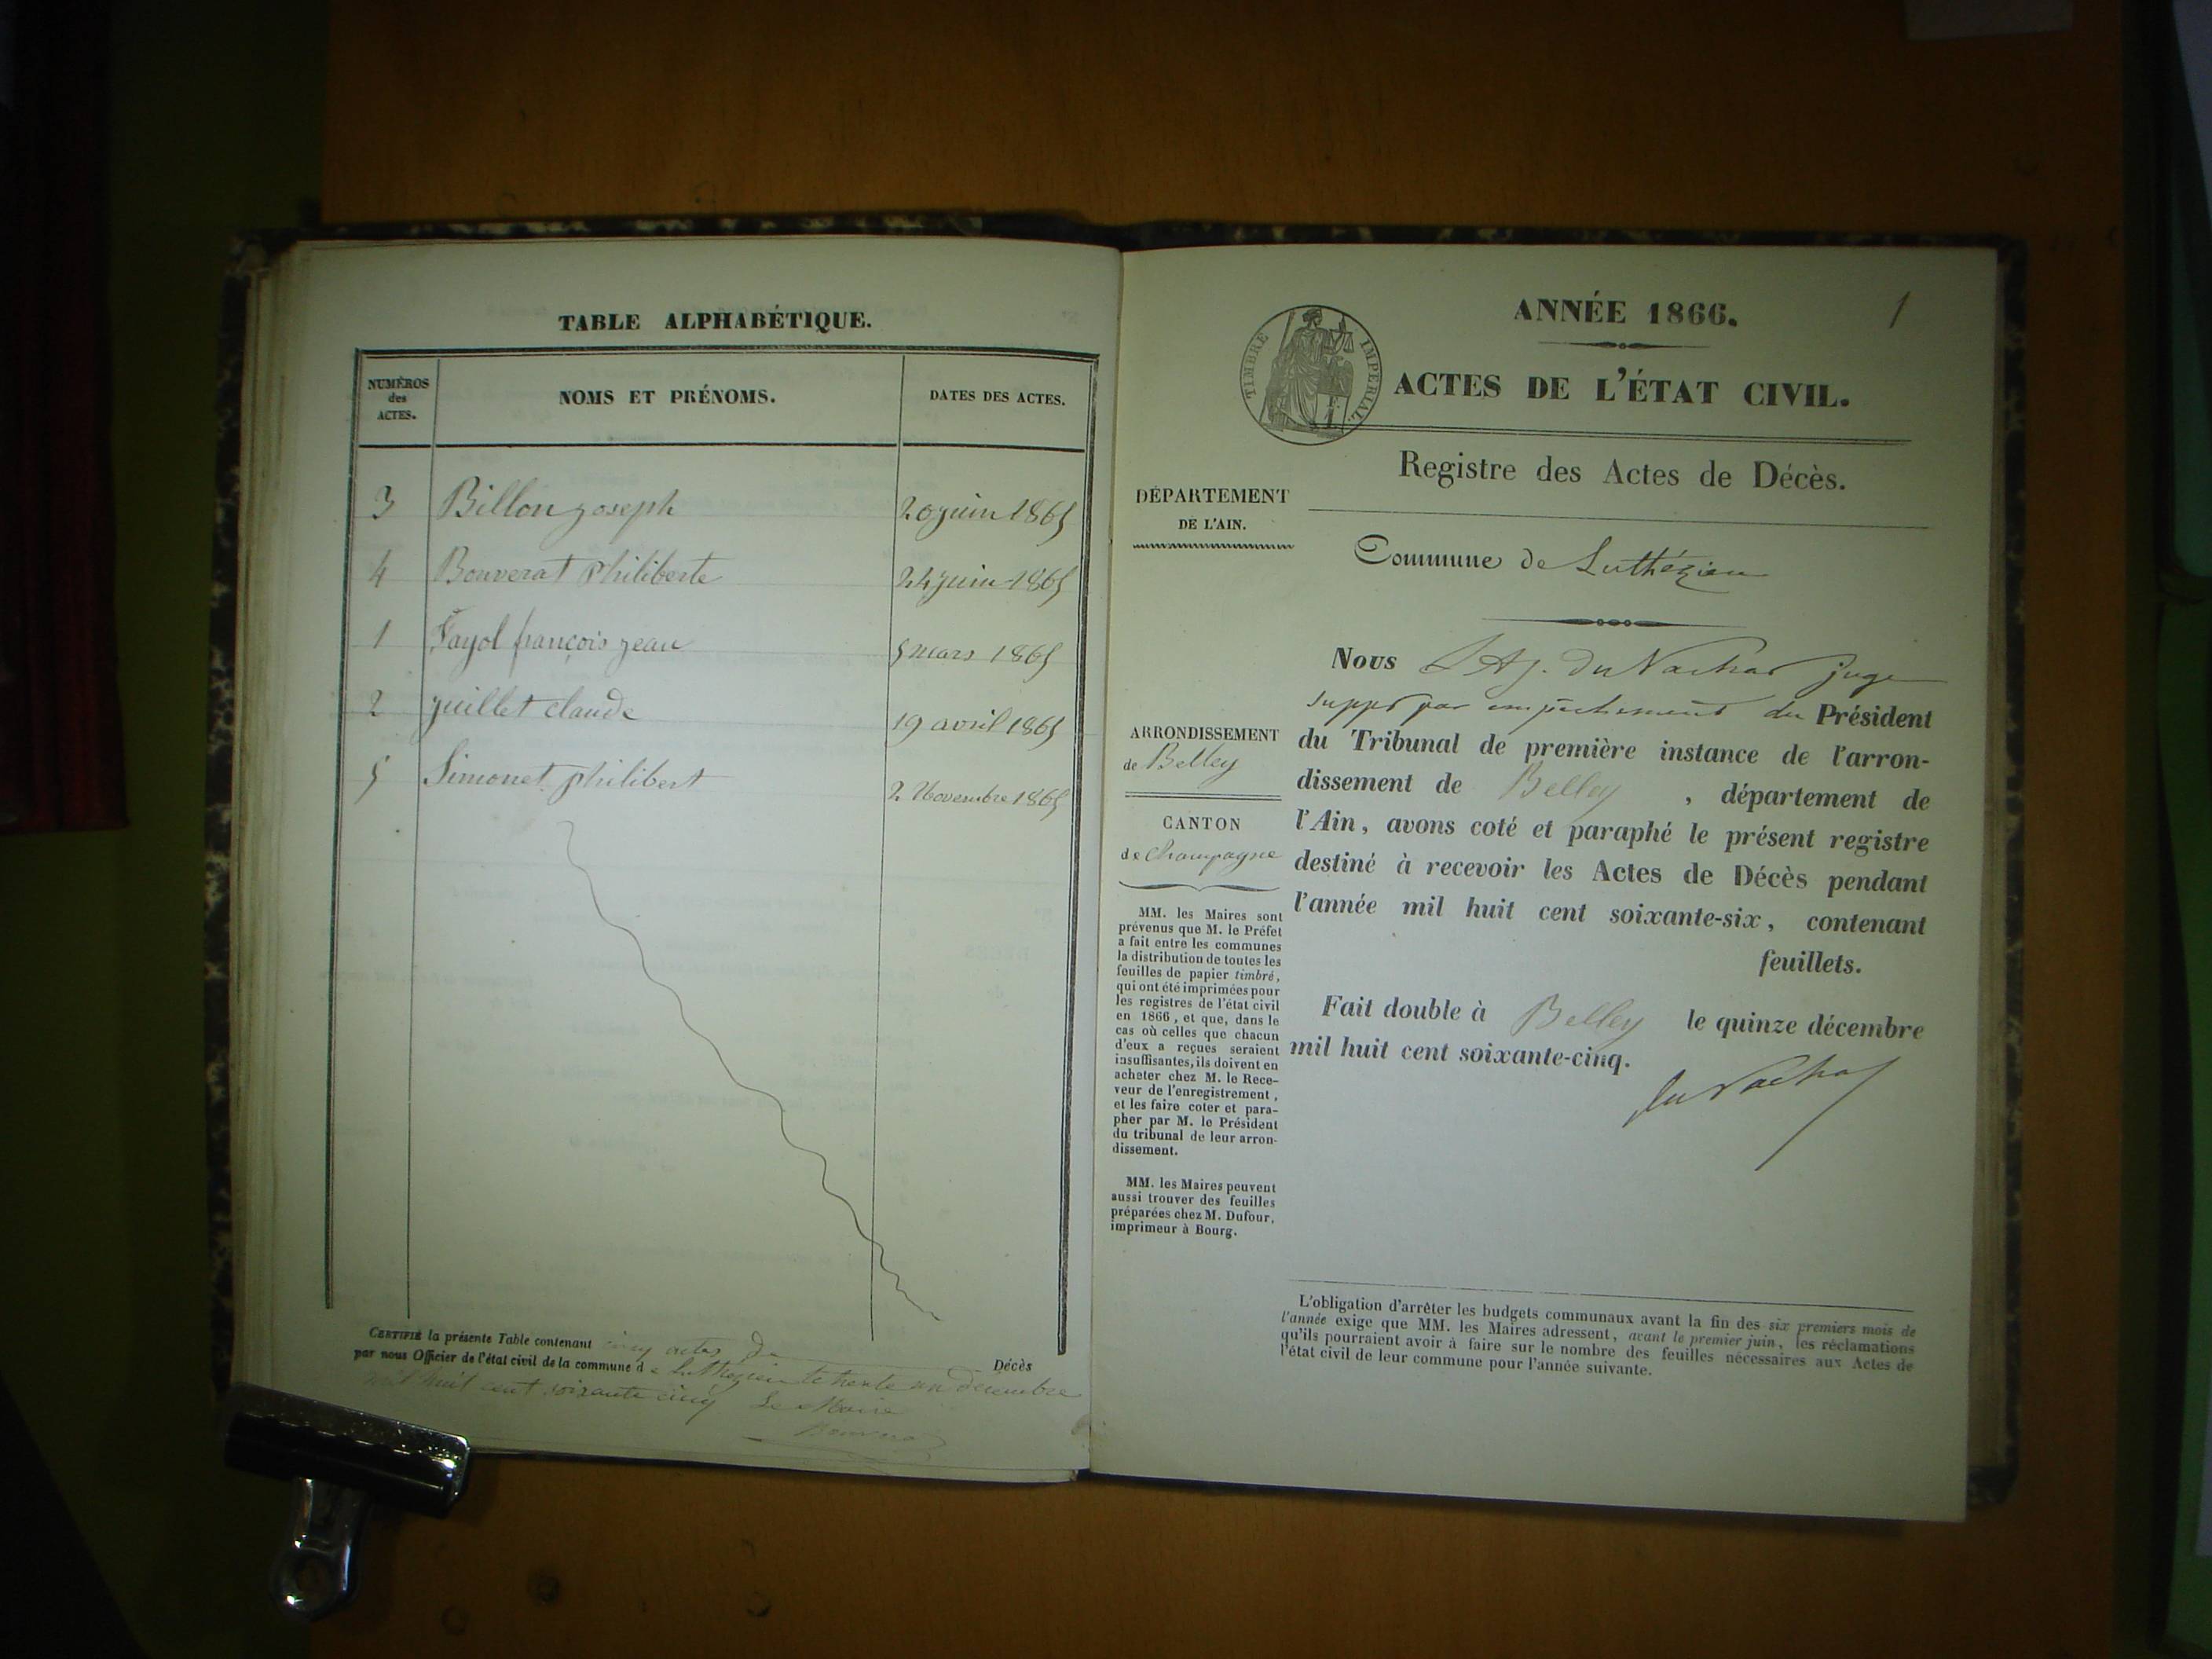 TABLE ALPHABÉTIQUE.
NUMÉROS des ACTES.
NOMS ET PRÉNOMS.
DATES DES ACTES.
3 Billon joseph 20 juin 1865
4 Bouverat Philiberte 24 juin 1865
1 Fayol françois jean 5 mars 1865
2 juillet claude 19 avril 1865
5 Simonet philibert 2 Novembre 1865
CERTIFIÉ la présente Table contenant cinq actes de Décès
par nous Officier de l'état civil de la commune de Luthézieu le trente un décembre
mil huit cent soixante cinq Le Maire
1
ANNÉE 1866.
TIMBRE IMPÉRIAL
ACTES DE L'ÉTAT CIVIL.
Registre des Actes de Décès.
DÉPARTEMENT
DE L'AIN.
Commune de Luthézieu
ARRONDISSEMENT
de Belley
CANTON
de Champagne
MM. les Maires sont
prévenus que M. le Préfet
a fait entre les communes
la distribution de toutes les
feuilles de papier timbré,
qui ont été imprimées pour
les registres de l'état civil
en 1866, et que, dans le
cas où celles que chacun
d'eux a reçues seraient
insuffisantes, ils doivent en
acheter chez M. le Rece-
veur de l'enregistrement,
et les faire coter et para-
pher par M. le Président
du tribunal de leur arron-
dissement.
MM. les Maires peuvent
aussi trouver des feuilles
préparées chez M. Dufour,
imprimeur à Bourg.
Nous du Nachat juge
suppt par empêchement du Président
du Tribunal de première instance de l'arron-
dissement de Belley, département de
l'Ain, avons coté et paraphé le présent registre
destiné à recevoir les Actes de Décès pendant
l'année mil huit cent soixante-six, contenant
feuillets.
Fait double à Belley le quinze décembre
mil huit cent soixante-cinq.
du Nachat
L'obligation d'arrêter les budgets communaux avant la fin des six premiers mois de
l'année exige que MM. les Maires adressent, avant le premier juin, les réclamations
qu'ils pourraient avoir à faire sur le nombre des feuilles nécessaires aux Actes de
l'état civil de leur commune pour l'année suivante.